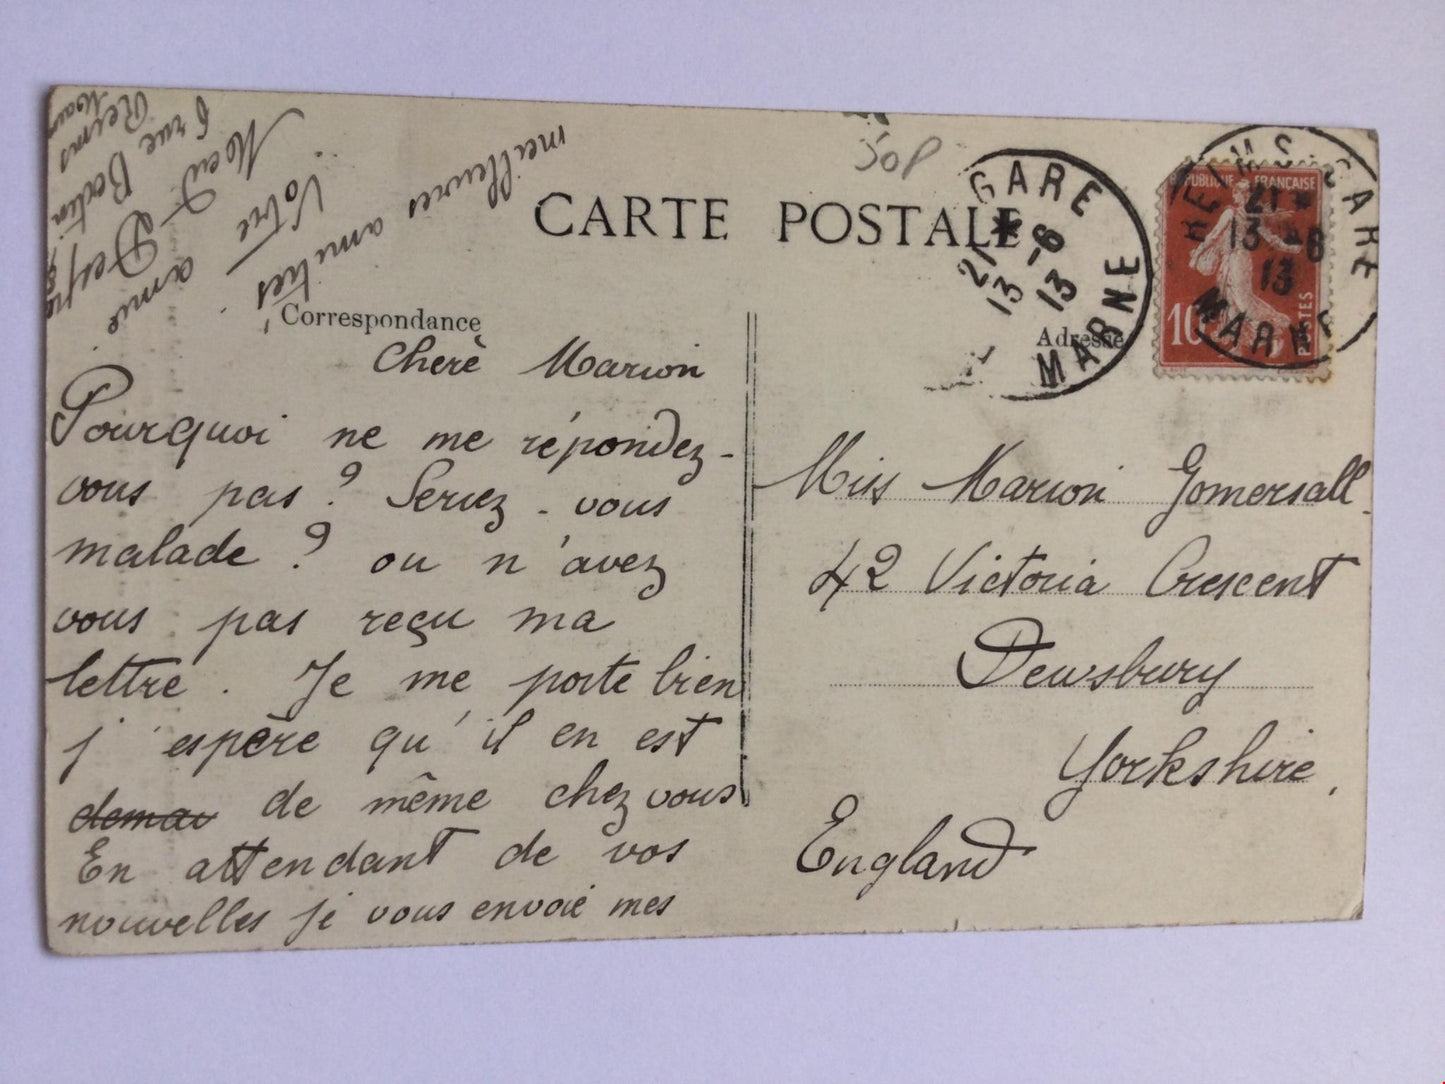 CARTE POSTALE
Correspondance
Adresse
50P
GARE
21 * 
13 -6
13
MARNE
REIMS GARE
21 *
13 -6
13
MARNE
REPUBLIQUE FRANÇAISE
10
POSTES
Cherè Marion
Pourquoi ne me répondez-
vous pas ? Seriez-vous
malade ? ou n'avez
vous pas reçu ma
lettre. Je me porte bien
j'espère qu'il en est
de même chez vous
En attendant de vos
nouvelles je vous envoie mes
meilleures amitiés
Votre amie
rue
Reims
Miss Marion Gomersall
42 Victoria Crescent
Dewsbury
Yorkshire,
England